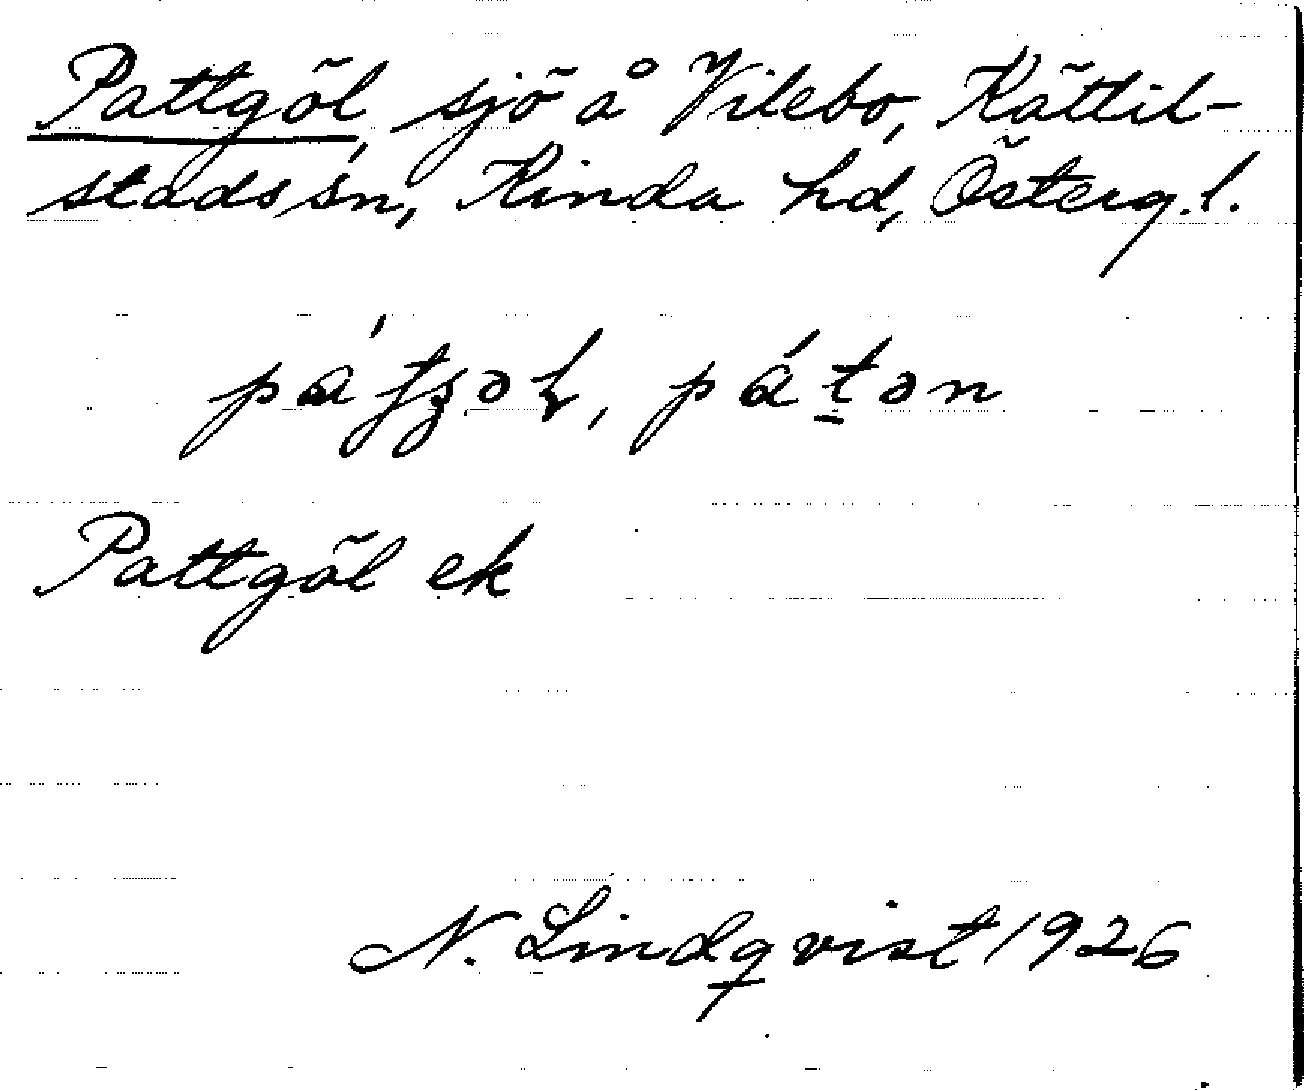 Pattgöl, sjö å Vilebo, Kättil-
stads sn, Kinda hd, Österg. l.
Pattgöl ek
N. Lindqvist 1926